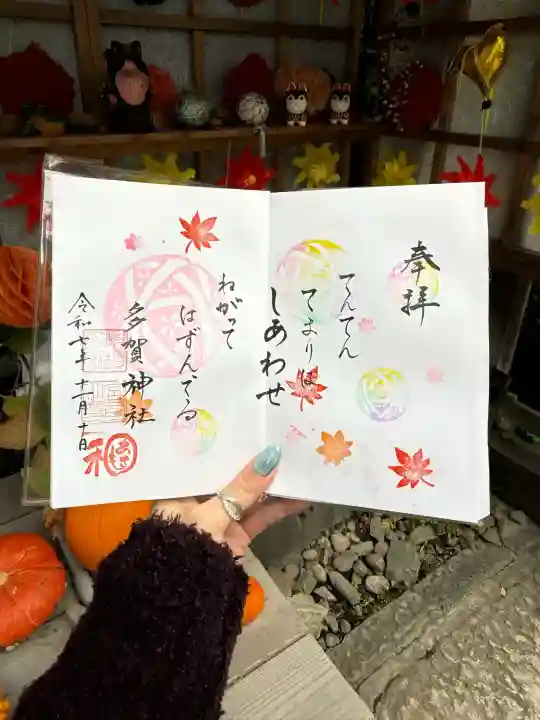 奉拝
てんてん
てまりは
しあわせ
ねがって
はずんでる
多賀神社
令和七年 十一月 十日